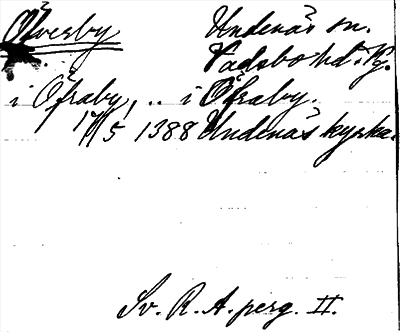 Ölvesby Undenäs sn.
Vadsbo hd. Vg.
i Öfraby, .. i Öfraby.
17/5 1388 Undenäs kyrka.
Sv. R. A. perg. II.